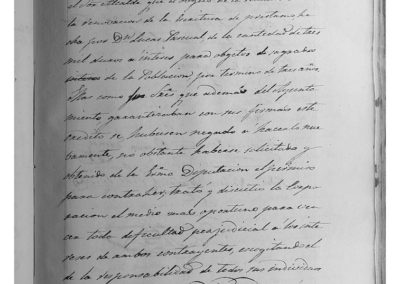 el Sor Alcalde que el objeto de la
la renovacion de la Escritura de prestamo he
cha por Dn Lucas Pascual de la cantidad de tres
mil duros a interes para objetos de sagrados
de la Poblacion por termino de tres años,
Mas como Sres que ademas del Ayunta
miento garantizaban con sus firmas este
credito se hubiesen negado á hacerlo nue
vamente, no obstante haberse solicitado y
obtenido de la Exma Diputacion el permiso
para contraher, trató y discutió la Corpo
racion el medio mas oportuno para ven
cer toda dificultad perjudicial á los inte
reses de ambos contrayentes, escogitando el
de la responsabilidad de todos sus individuos